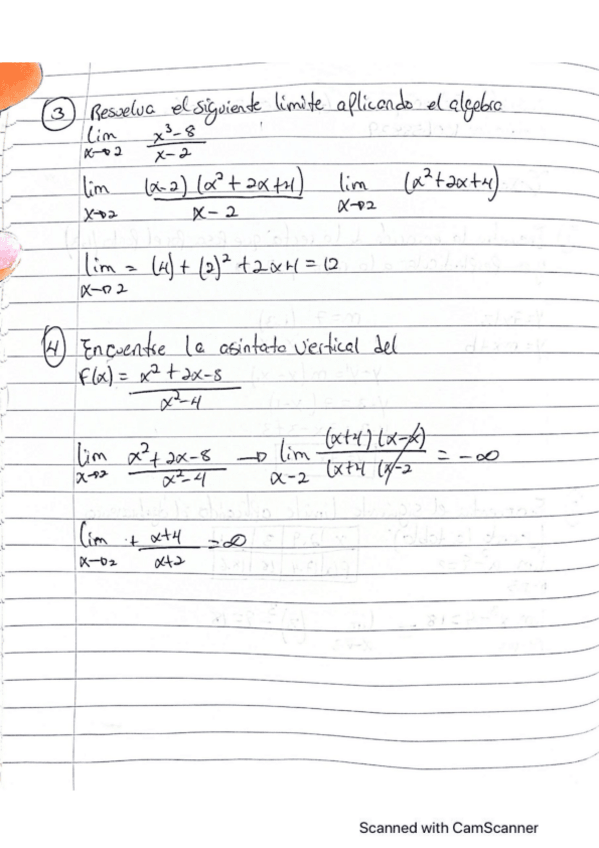 3 Resuelva el siguiente limite aplicando el algebra
lim x³-8
x→2 x-2
lim (x-2) (x²+2x+4) lim (x²+2x+4)
x→2 x-2 x→2
lim = (4) + (2)² + 2x4 = 12
x→2
4 Encuentre la asintato vertical del
F(x) = x² + 2x-8
x²-4
lim x²+2x-8 → lim (x+4) (x-2) = -∞
x→2 x²-4 x-2 (x+4 (x-2
lim + x+4 = ∞
x→2 x+2
Scanned with CamScanner